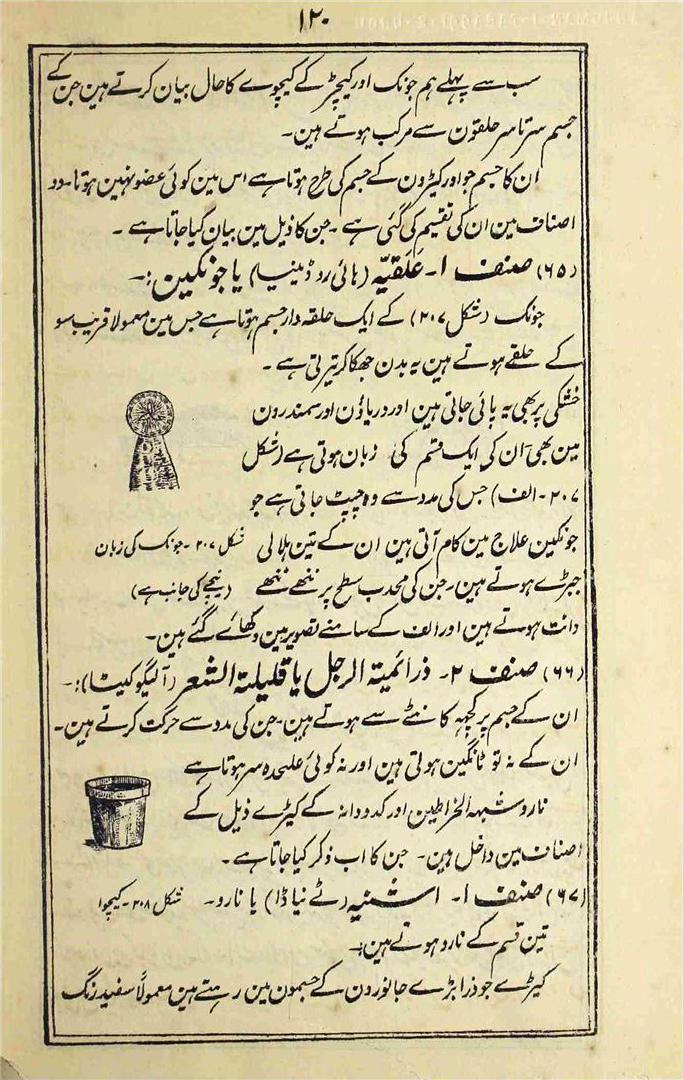 ۱۲۰
سب سے پہلے ہم جونک اور کیچڑ کے کیچوے کا حال بیان کرتے ہین جن کے
جسم سرتاسر حلقون سے مرکب ہوتے ہین۔
ان کا جسم جو اور کیڑون کے جسم کی طرح ہوتا ہے اس مین کوئی عضو نہین ہوتا۔ دو
اصناف مین ان کی تقسیم کی گئی ہے ۔ جن کا ذیل مین بیان کیا جاتا ہے ۔
(۶۵) صنف ۱۔ عَلَقیّہ (ہائی روڈینیا) یا جونکین:۔
جونک (شکل ۲۰۷) کے ایک حلقہ دار جسم ہوتا ہے جس مین معمولاً قریب سو
کے حلقے ہوتے ہین یہ بدن جھکا کر تیرتی ہے ۔
خشکی پر بھی یہ پائی جاتی ہین اور دریاؤن اور سمندرون
مین بھی۔ ان کی ایک قسم کی زبان ہوتی ہے (شکل
۲۰۷۔ الف) جس کی مدد سے وہ چپٹ جاتی ہے جو
جونکین علاج مین کام آتی ہین ان کے تین ہلالی
شکل ۲۰۷۔ جونک کی زبان
جبڑے ہوتے ہین۔ جن کی محدب سطح پر ننھے ننھے
(نیچے کی جانب ہے)
دانت ہوتے ہین اور الف کے سامنے تصویر مین دکھائے گئے ہین۔
(۶۶) صنف ۲۔ ذرائمیتہ الرجل یا قلیلتہ الشعر (آلیگوکیٹا):۔
ان کے جسم پر کچھہ کانٹے سے ہوتے ہین۔ جن کی مدد سے حرکت کرتے ہین۔
ان کے نہ تو ٹانگین ہوتی ہین اور نہ کوئی علیحدہ سر ہوتا ہے
نارو شبہہ الخراطین اور کدو دانہ کے کیڑے ذیل کے
اصناف مین داخل ہین۔ جن کا اب ذکر کیا جاتا ہے ۔
(۶۷) صنف ۱۔ اسٹنیہ (ٹے نیا ڈا) یا نارو۔
شکل ۲۰۸۔ کیچوا
تین قسم کے نارو ہوتے ہین:۔
کیڑے جو ذرا بڑے جانورون کے جسمون مین رہتے ہین معمولاً سفید رنگ